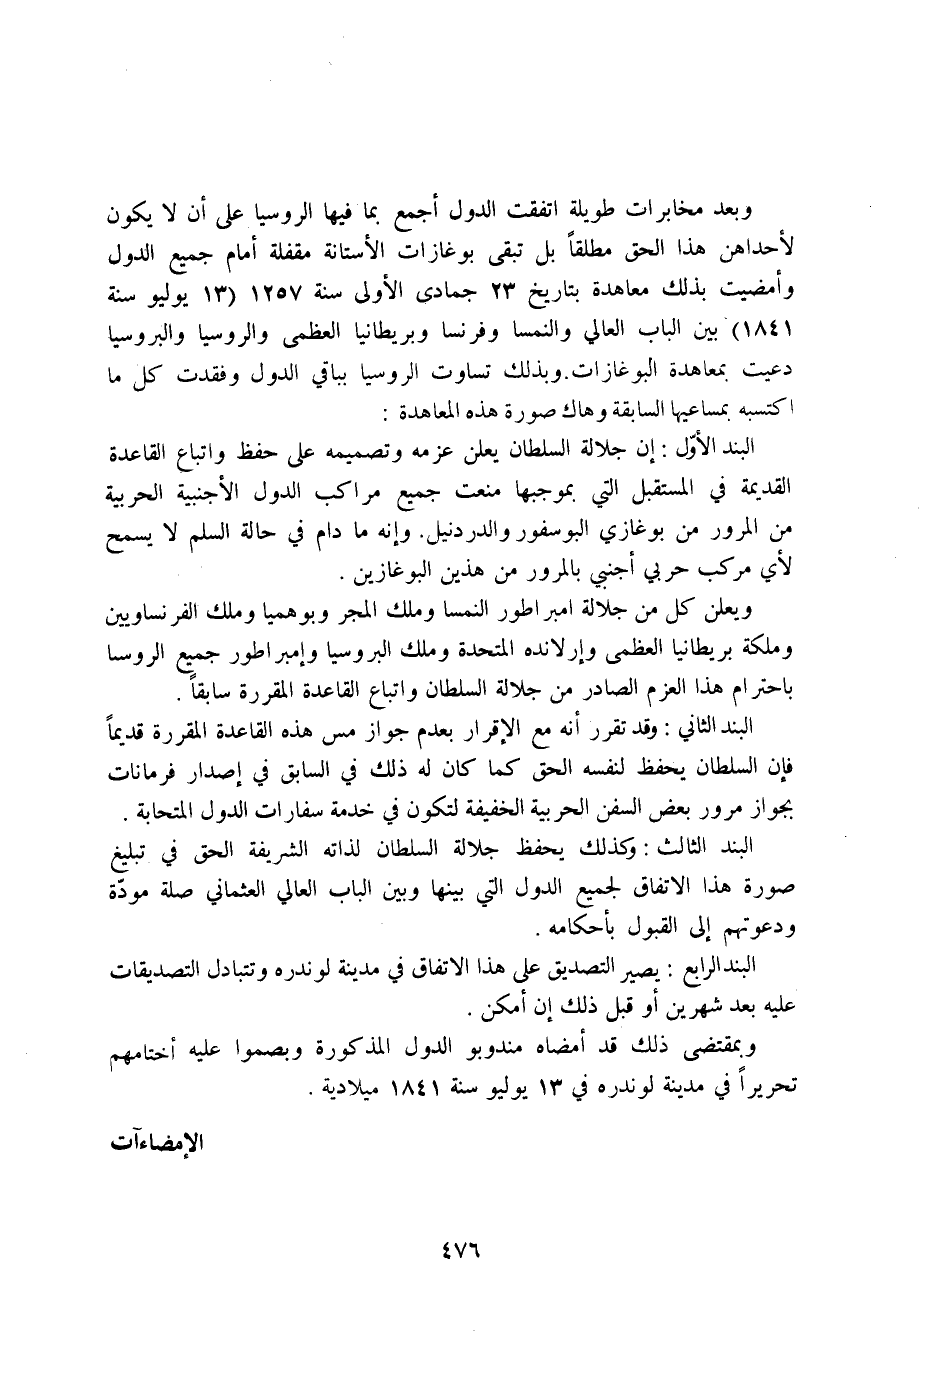 وبعد مخابرات طويلة اتفقت الدول أجمع بما فيها الروسيا على أن لا يكون
لأحداهن هذا الحق مطلقاً بل تبقى بوغازات الأستانة مقفلة أمام جميع الدول
وأمضيت بذلك معاهدة بتاريخ ٢٣ جمادى الأولى سنة ١٢٥٧ (١٣ يوليو سنة
١٨٤١) بين الباب العالي والنمسا وفرنسا وبريطانيا العظمى والروسيا والبروسيا
دعيت بمعاهدة البوغازات. وبذلك تساوت الروسيا بباقي الدول وفقدت كل ما
اكتسبه بمساعيها السابقة وهاك صورة هذه المعاهدة :
البند الأوّل : إن جلالة السلطان يعلن عزمه وتصميمه على حفظ واتباع القاعدة
القديمة في المستقبل التي بموجبها منعت جميع مراكب الدول الأجنبية الحربية
من المرور من بوغازي البوسفور والدردنيل. وإنه ما دام في حالة السلم لا يسمح
لأي مركب حربي أجنبي بالمرور من هذين البوغازين .
ويعلن كل من جلالة امبراطور النمسا وملك المجر وبوهميا وملك الفرنساويين
وملكة بريطانيا العظمى وإرلانده المتحدة وملك البروسيا وإمبراطور جميع الروسا
باحترام هذا العزم الصادر من جلالة السلطان واتباع القاعدة المقررة سابقاً .
البند الثاني : وقد تقرر أنه مع الإقرار بعدم جواز مس هذه القاعدة المقررة قديماً
فإن السلطان يحفظ لنفسه الحق كما كان له ذلك في السابق في إصدار فرمانات
بجواز مرور بعض السفن الحربية الخفيفة لتكون في خدمة سفارات الدول المتحابة .
البند الثالث : وكذلك يحفظ جلالة السلطان لذاته الشريفة الحق في تبليغ
صورة هذا الاتفاق لجميع الدول التي بينها وبين الباب العالي العثماني صلة مودّة
ودعوتهم إلى القبول بأحكامه .
البند الرابع : يصير التصديق على هذا الاتفاق في مدينة لوندره وتتبادل التصديقات
عليه بعد شهرين أو قبل ذلك إن أمكن .
وبمقتضى ذلك قد أمضاه مندوبو الدول المذكورة وبصموا عليه أختامهم
تحريراً في مدينة لوندره في ١٣ يوليو سنة ١٨٤١ ميلادية .
الإمضاءآت
٤٧٦